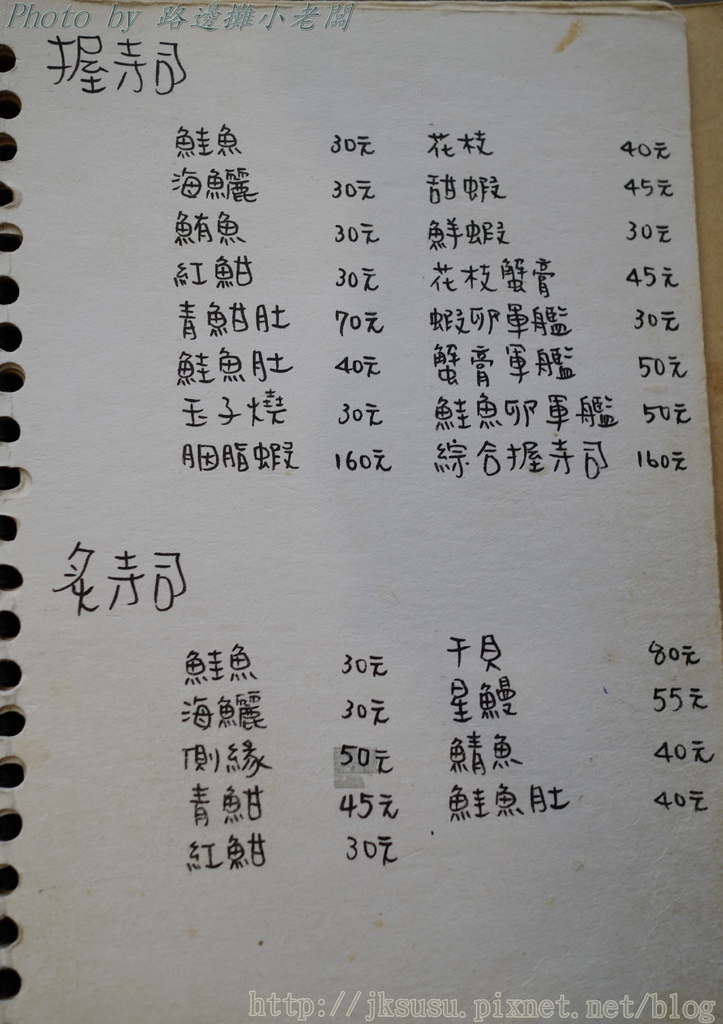 Photo by 路邊攤小老闆
握寺司
鮭魚 30元 花枝 40元
海鱺 30元 甜蝦 45元
鮪魚 30元 鮮蝦 30元
紅魽 30元 花枝蟹膏 45元
青魽肚 70元 蝦卵軍艦 30元
鮭魚肚 40元 蟹膏軍艦 50元
玉子燒 30元 鮭魚卵軍艦 50元
胭脂蝦 160元 綜合握寺司 160元
炙寺司
鮭魚 30元 干貝 80元
海鱺 30元 星鰻 55元
側緣 50元 鯖魚 40元
青魽 45元 鮭魚肚 40元
紅魽 30元
http://jksusu.pixnet.net/blog